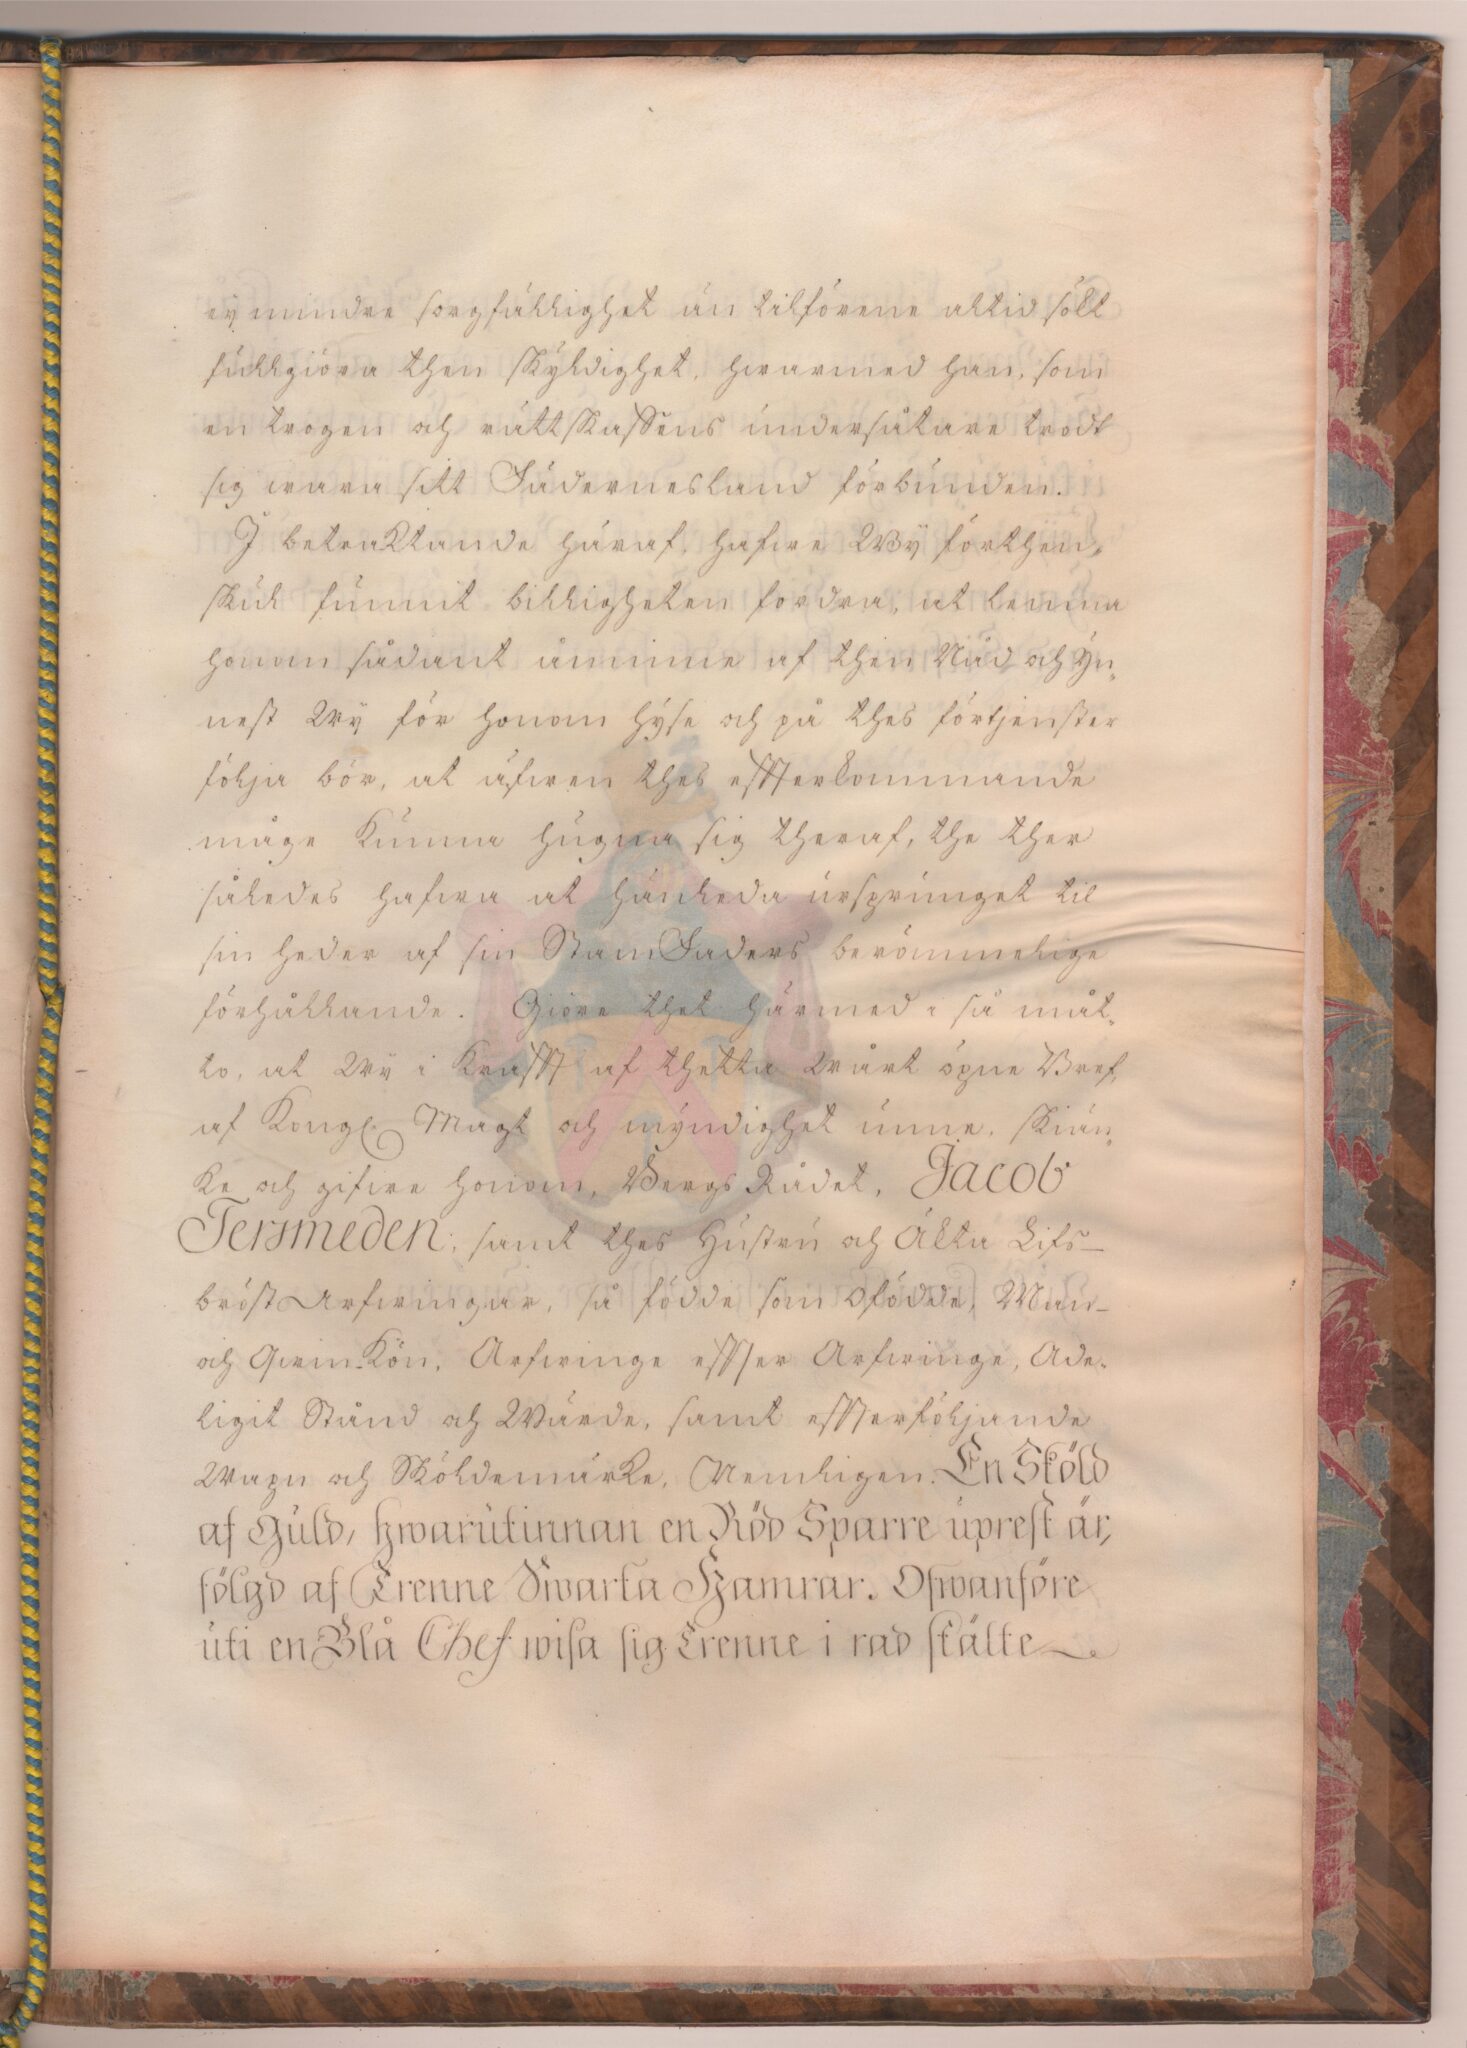 ey mindre sorgfällighet än tilförene altid sökt
fullgiöra then skyldighet, hwarmed han, som
en trogen och rättskaffens undersåtare trodt
sig wara sitt Fädernesland förbunden.
I betraktande häraf, hafwe Wÿ förthen„
skul funnit billigheten fordra, at lemna
honom sådant äminne af then Nåd och Yn„
nest Wÿ för honom hÿse och på thes förtjenster
följa bör, at äfwen thes effterkommande
måge kunna hugna sig theraf, the ther
således hafwa at hänleda ursprunget til
sin heder af sin StamFaders berömmelige
förhållande. Giöre thet härmed i så måt„
to, at Wÿ i krafft af thetta Wårt öpne Bref,
af Kongl. Magt och mÿndighet unne, skiän„
ke och gifwe honom, Bergs Rådet, Jacob
Tersmeden, samt thes Hustru och Äkta Lifs–
bröst Arfwingar, så födde som Ofödde, Man–
och Qwin-Kön, Arfwinge effter Arfwinge, Ade„
ligit Stånd och Wärde, samt effterföljande
Wapn och Sköldemärke, Nemligen. En Sköld
af Guld, hwarutinnan en Röd Sparre uprest är,
fölgd af Trenne Swarta Hamrar. Ofwanföre
uti en Blå Chef wisa sig Trenne i rad stälte